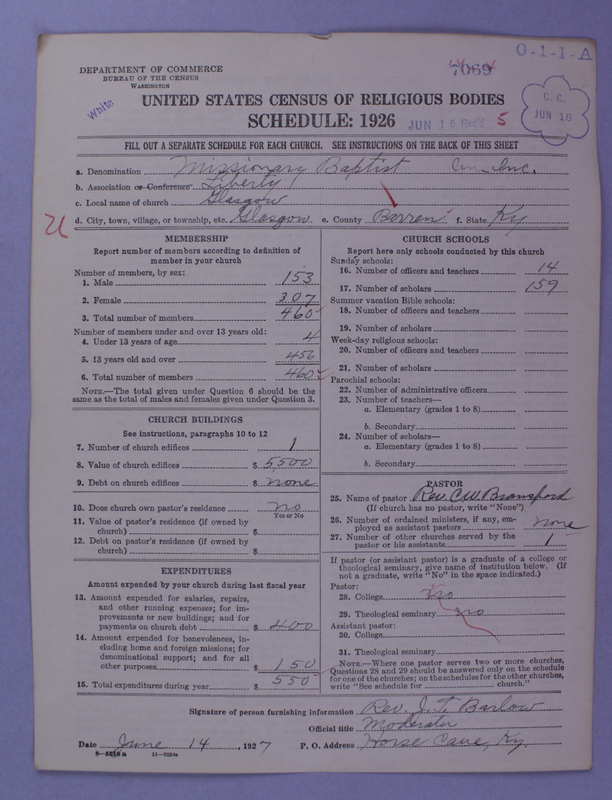 O-1-1-A
DEPARTMENT OF COMMERCE
BUREAU OF THE CENSUS
WASHINGTON
7069
White
UNITED STATES CENSUS OF RELIGIOUS BODIES
SCHEDULE: 1926
JUN 16 Rec'd 5
C. C.
JUN 16
FILL OUT A SEPARATE SCHEDULE FOR EACH CHURCH. SEE INSTRUCTIONS ON THE BACK OF THIS SHEET
a. Denomination Missionary Baptist
b. Association or Conference Liberty
c. Local name of church Glasgow
d. City, town, village, or township, etc. Glasgow. e. County Barren f. State Ky
U
MEMBERSHIP
Report number of members according to definition of
member in your church
Number of members, by sex:
1. Male 153
2. Female 307
3. Total number of members 460
Number of members under and over 13 years old:
4. Under 13 years of age 4
5. 13 years old and over 456
6. Total number of members 460
NOTE.—The total given under Question 6 should be the
same as the total of males and females given under Question 3.
CHURCH BUILDINGS
See instructions, paragraphs 10 to 12
7. Number of church edifices 1
8. Value of church edifices $ 5500
9. Debt on church edifices $ none
10. Does church own pastor's residence no
Yes or No
11. Value of pastor's residence (if owned by
church) $
12. Debt on pastor's residence (if owned by
church) $
EXPENDITURES
Amount expended by your church during last fiscal year
13. Amount expended for salaries, repairs,
and other running expenses; for im-
provements or new buildings; and for
payments on church debt $ 400
14. Amount expended for benevolences, in-
cluding home and foreign missions; for
denominational support; and for all
other purposes $ 150
15. Total expenditures during year $ 550
CHURCH SCHOOLS
Report here only schools conducted by this church
Sunday schools:
16. Number of officers and teachers 14
17. Number of scholars 159
Summer vacation Bible schools:
18. Number of officers and teachers
19. Number of scholars
Week-day religious schools:
20. Number of officers and teachers
21. Number of scholars
Parochial schools:
22. Number of administrative officers
23. Number of teachers—
a. Elementary (grades 1 to 8)
b. Secondary
24. Number of scholars—
a. Elementary (grades 1 to 8)
b. Secondary
PASTOR
25. Name of pastor Rev. C.W. Bransford
(If church has no pastor, write "None")
26. Number of ordained ministers, if any, em-
ployed as assistant pastors none
27. Number of other churches served by the
pastor or his assistants 1
If pastor (or assistant pastor) is a graduate of a college or
theological seminary, give name of institution below. (If
not a graduate, write "No" in the space indicated.)
Pastor:
28. College No
29. Theological seminary no
Assistant pastor:
30. College
31. Theological seminary
NOTE.—Where one pastor serves two or more churches,
Questions 28 and 29 should be answered only on the schedule
for one of the churches; on the schedules for the other churches,
write "See schedule for church."
Signature of person furnishing information Rev. J. T. Barlow
Official title Moderator
Date June 14, 1927 P. O. Address Horse Cave, Ky.